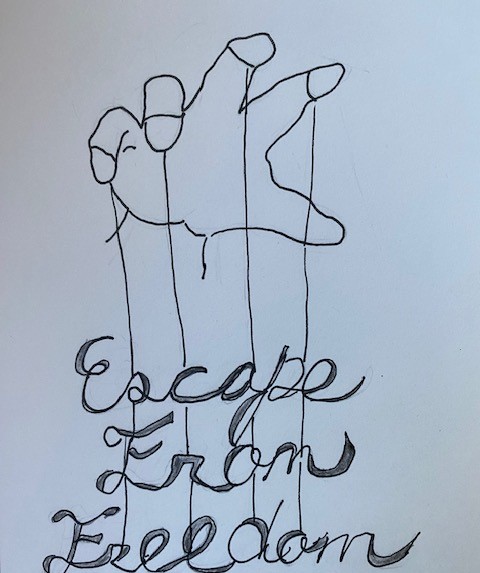 Escape
From
Freedom